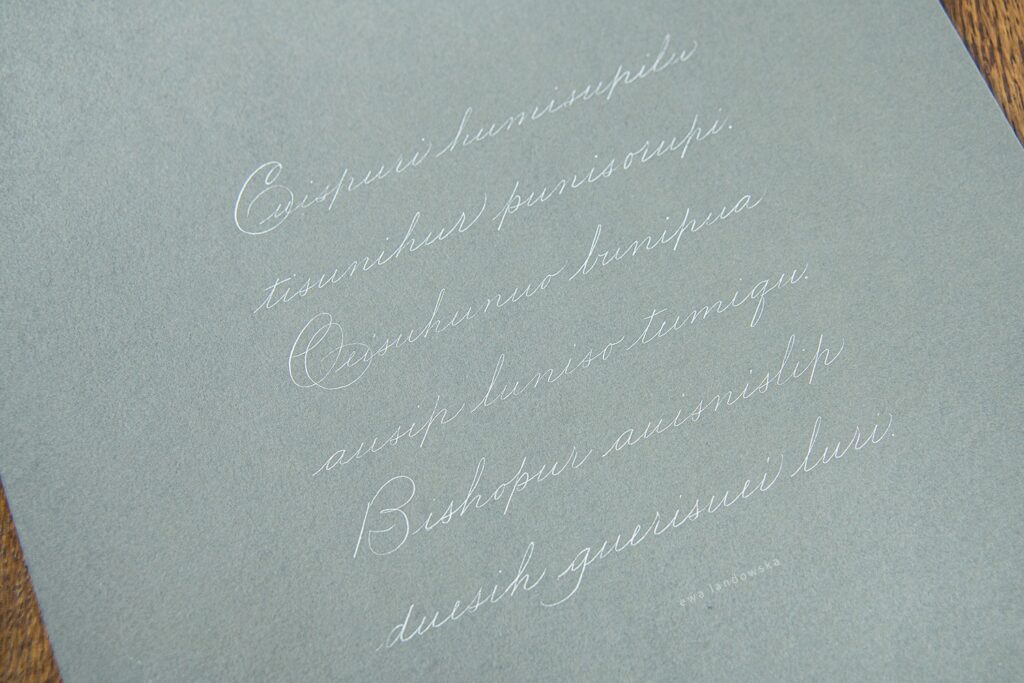 Cuispuri humisupilu
tisunihur punisorupi.
Ouisuhunuo bunipua
ausip luniso tumiqu.
Bishopur auisnislip
duesih guerisuei luri.
ewa landowska